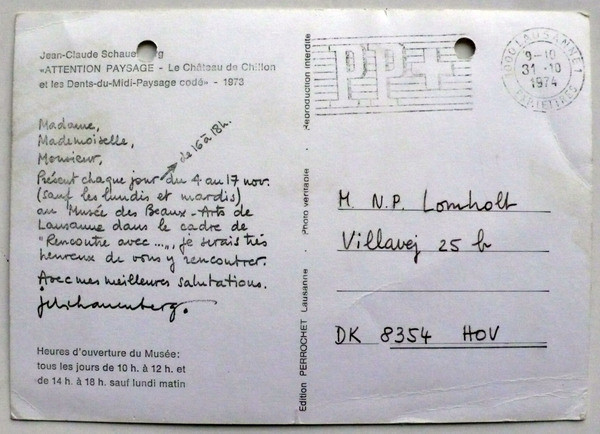 Jean-Claude Schauenberg
«ATTENTION PAYSAGE - Le Château de Chillon
et les Dents-du-Midi-Paysage codé» - 1973
Madame,
Mademoiselle,
Monsieur,
de 16 à 18h.
Présent chaque jour du 4 au 17 nov.
(sauf les lundis et mardis)
au Musée des Beaux-Arts de
Lausanne dans le cadre de
"Rencontre avec ...", je serais très
heureux de vous y rencontrer.
Avec mes meilleures salutations.
JClSchauenberg.
Heures d'ouverture du Musée:
tous les jours de 10 h. à 12 h. et
de 14 h. à 18 h. sauf lundi matin
Edition PERROCHET Lausanne - Photo véritable - Reproduction interdite
PP
1000 LAUSANNE 1
9-10
31.10
1974
M. N.P. Lomholt
Villavej 25 b
DK 8354 HOV